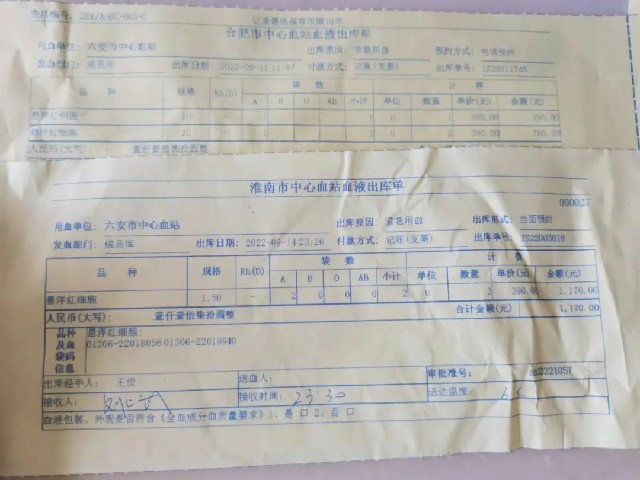 合肥市中心血站血液出库单
用血单位: 六安市中心血站 出库原因: 紧急用血 预约方式: 电话预约
发血部门: 成品库 出库日期: 付款方式: 记账(支票) 出库单号:
袋 数 计 算
品 种 规格 Rh(D) A B O AB 小计 单位 数量 单价(元) 金额(元)
悬浮红细胞 1 390.00 390.00
悬浮红细胞 780.00
人民币(大写): 壹仟壹佰柒拾圆整
淮南市中心血站血液出库单
000027
用血单位: 六安市中心血站 出库原因: 紧急用血 出库形式: 当面预约
发血部门: 成品库 出库日期: 2022-09-14 23:26 付款方式: 记账(支票) 出库单号: XS22003618
袋 数 计 算
品 种 规格 Rh(D) A B O AB 小计 单位 数量 单价(元) 金额(元)
悬浮红细胞 1.5U -- 2 0 0 0 2 U 3 390.00 1,170.00
人民币(大写): 壹仟壹佰柒拾圆整 合计金额(元) 1,170.00
品种及血袋码信息 悬浮红细胞
01306-22018096 01306-22019940
出库经手人: 王俊 送血人: 审批准号:
接收人: 接收时间: 23:30 送达温度:
血液包装、外观是否符合《全血成分血质量要求》1、是 口 2、否 口